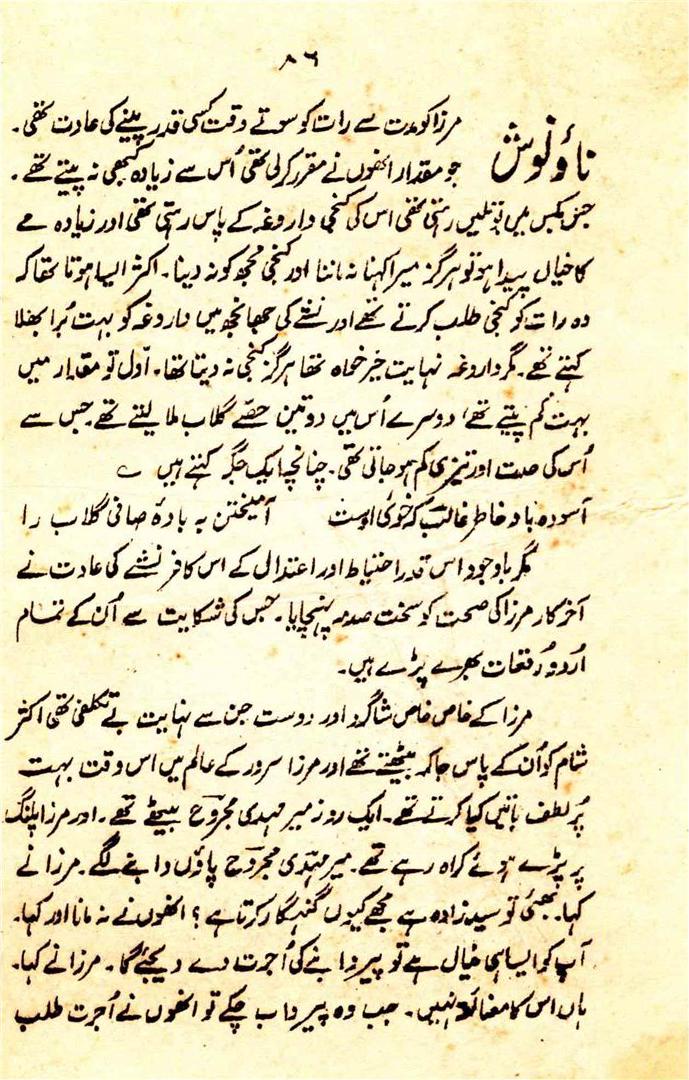 ۸۶
ناؤ نوش
مرزا کو مدت سے رات کو سوتے وقت کسی قدر پینے کی عادت تھی۔
جو مقدار انھوں نے مقرر کر لی تھی اُس سے زیادہ کبھی نہ پیتے تھے۔
جس بکس میں بوتلیں رہتی تھی اس کی کنجی داروغہ کے پاس رہتی تھی اور زیادہ مے
کا خیال پیدا ہو تو ہرگز میرا کہنا نہ ماننا اور کنجی مجھ کو نہ دینا۔ اکثر ایسا ہوتا تھا کہ
وہ رات کو کنجی طلب کرتے تھے اور نشے کی جھانجھ میں داروغہ کو بہت بُرا بھلا
کہتے تھے۔ مگر داروغہ نہایت خیر خواہ تھا ہرگز کنجی نہ دیتا تھا۔ اوّل تو مقدار میں
بہت کم پیتے تھے، دوسرے اُس میں دو تین حصّے گلاب ملا لیتے تھے جس سے
اُس کی حدت اور تیزی کم ہو جاتی تھی۔ چنانچہ ایک جگہ کہتے ہیں ؎
آسودہ باد خاطرِ غالبؔ کہ خوئے اوست آمیختن بہ بادۂ صافی گلاب را
مگر باوجود اس قدر احتیاط اور اعتدال کے اس کافر نشے کی عادت نے
آخر کار مرزا کی صحت کو سخت صدمہ پہنچایا۔ جس کی شکایت سے اُن کے تمام
اُردو رُقعات بھرے پڑے ہیں۔
مرزا کے خاص خاص شاگرد اور دوست جن سے نہایت بے تکلفی تھی اکثر
شام کو اُن کے پاس جا کر بیٹھتے تھے اور مرزا سرور کے عالم میں اس وقت بہت
پُر لطف باتیں کیا کرتے تھے۔ ایک روز میر مہدی مجروح بیٹھے تھے۔ اور مرزا پلنگ
پر پڑے ہوئے کراہ رہے تھے۔ میر مہدی مجروح پاؤں دابنے لگے۔ مرزا نے
کہا۔ بھئی تو سید زادہ ہے مجھے کیوں گنہگار کرتا ہے؟ انھوں نے نہ مانا اور کہا۔
آپ کو ایسا ہی خیال ہے تو پیر دابنے کی اُجرت دے دیجئے گا۔ مرزا نے کہا۔
ہاں اس کا مضائقہ نہیں۔ جب وہ پیر داب چکے تو انھوں نے اُجرت طلب